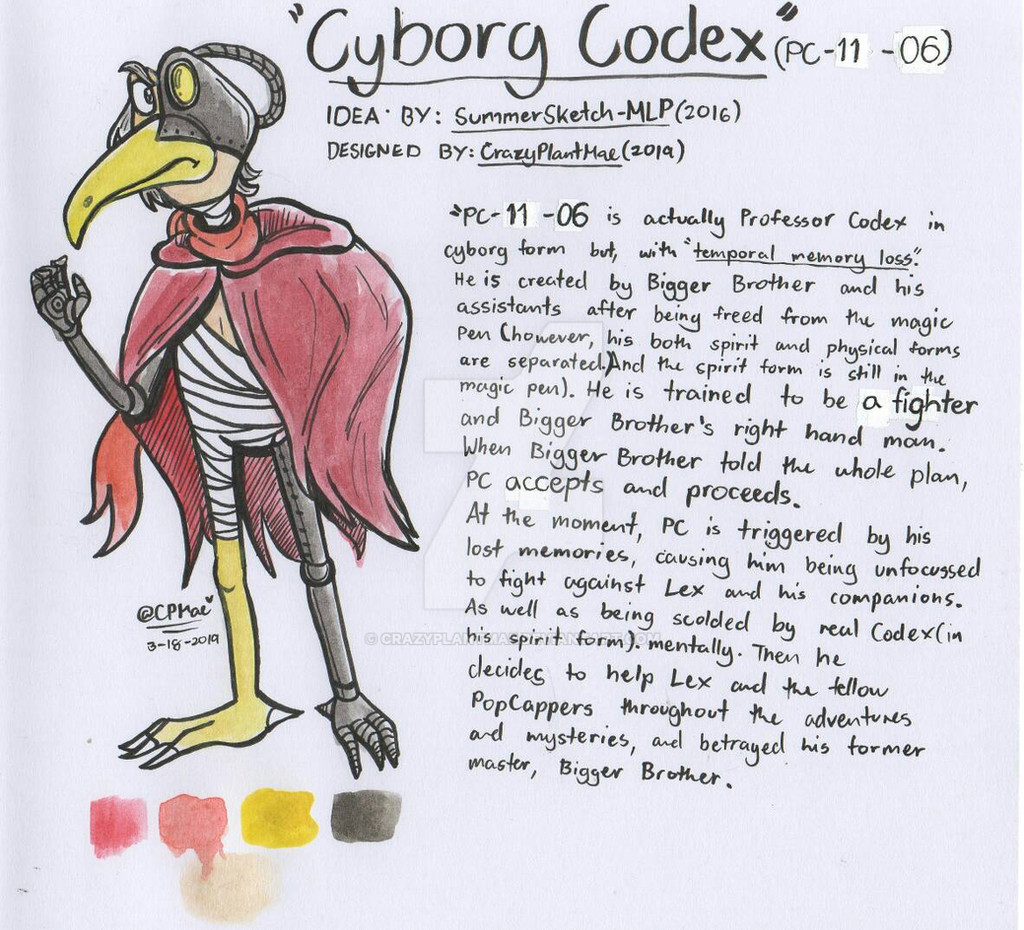 "Cyborg Codex" (PC-11-06)
IDEA BY: SummerSketch-MLP (2016)
DESIGNED BY: CrazyPlantMae (2019)
"PC-11-06 is actually Professor Codex in
cyborg form but, with "temporal memory loss".
He is created by Bigger Brother and his
assistants after being freed from the magic
pen (however, his both spirit and physical forms
are separated. And the spirit form is still in the
magic pen). He is trained to be a fighter
and Bigger Brother's right hand man.
When Bigger Brother told the whole plan,
PC accepts and proceeds.
At the moment, PC is triggered by his
lost memories, causing him being unfocussed
to fight against Lex and his companions.
As well as being scolded by real Codex (in
his spirit form). mentally. Then he
decides to help Lex and the fellow
PopCappers throughout the adventures
and mysteries, and betrayed his former
master, Bigger Brother.
@CPMae
3-18-2019
© CRAZYPLANTMAE.DEVIANTART.COM